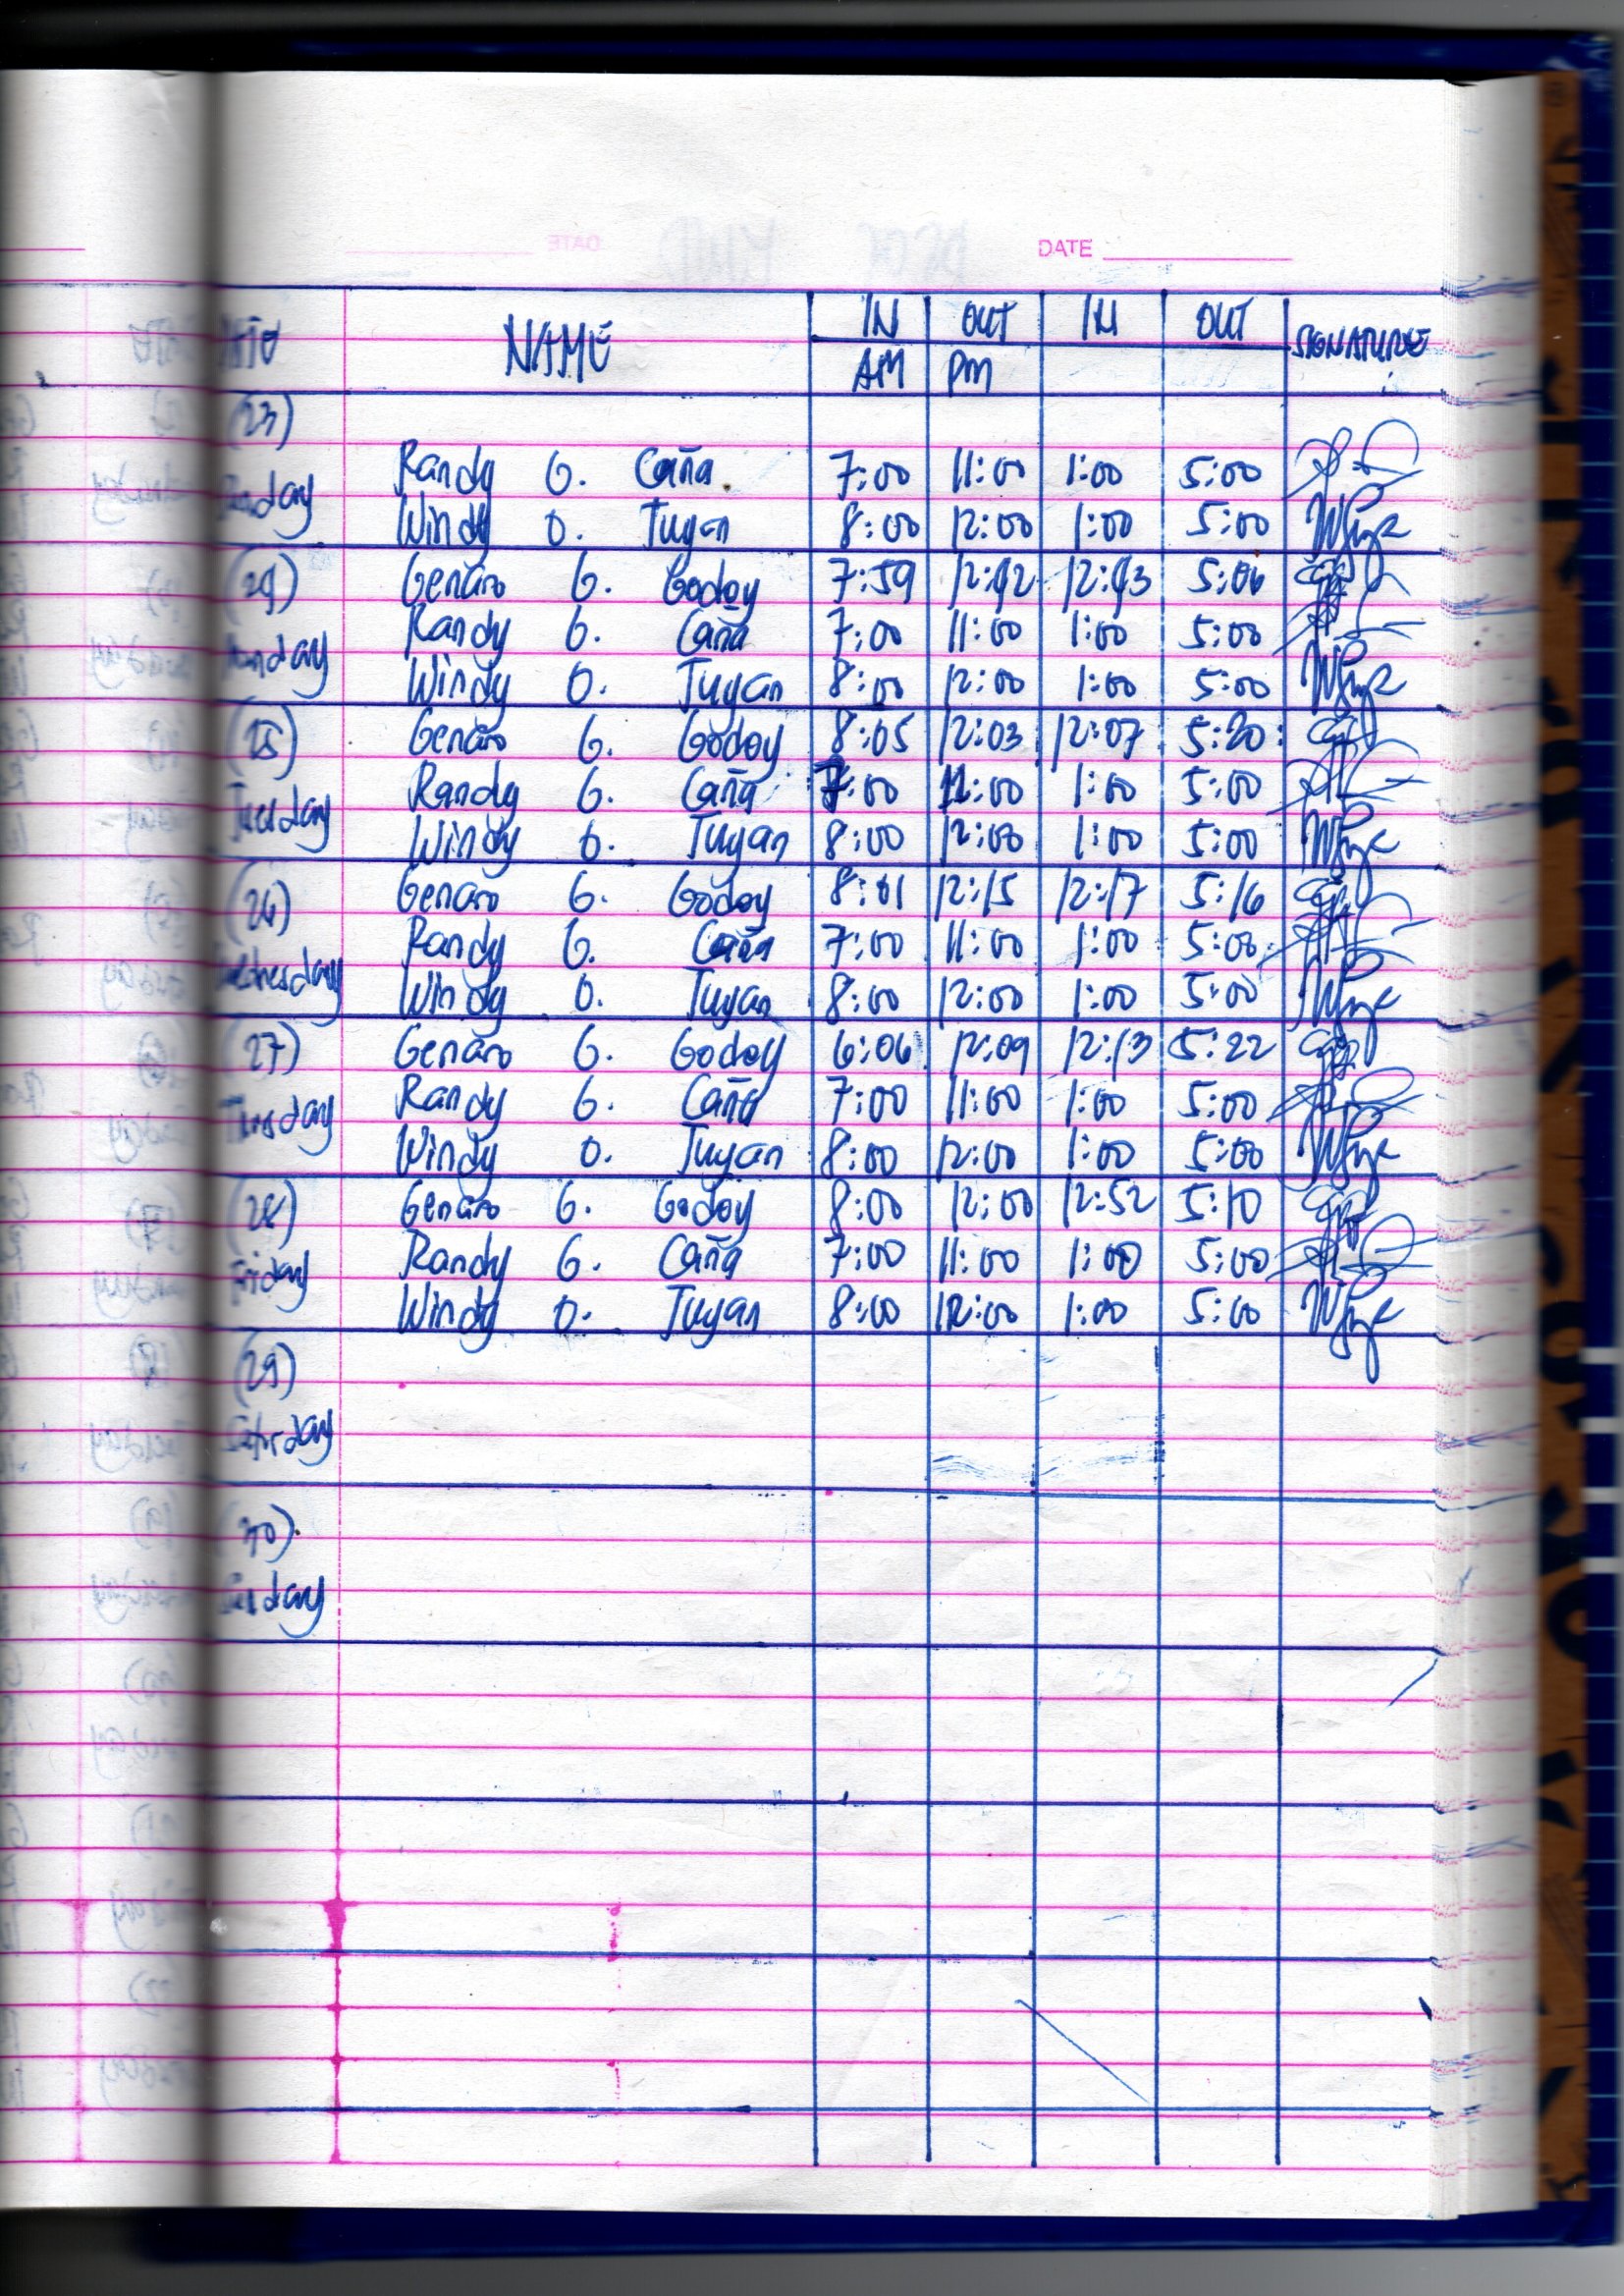 DATE
NAME IN OUT IN OUT SIGNATURE
AM PM
(23)
Sunday Randy G. Caña 7:00 11:00 1:00 5:00
Windy O. Tuyan 8:00 12:00 1:00 5:00
(24) Genaro G. Godoy 7:59 12:42 12:43 5:06
Monday Randy G. Caña 7:00 11:00 1:00 5:00
Windy O. Tuyan 8:00 12:00 1:00 5:00
(25) Genaro G. Godoy 8:05 12:03 12:07 5:20
Tuesday Randy G. Caña 7:00 11:00 1:00 5:00
Windy O. Tuyan 8:00 12:00 1:00 5:00
(26) Genaro G. Godoy 8:01 12:15 12:17 5:16
Wednesday Randy G. Caña 7:00 11:00 1:00 5:00
Windy O. Tuyan 8:00 12:00 1:00 5:00
(27) Genaro G. Godoy 6:06 12:09 12:13 5:22
Randy G. Caña 7:00 11:00 1:00 5:00
Windy O. Tuyan 8:00 12:00 1:00 5:00
(28) Genaro G. Godoy 8:00 12:00 12:52 5:10
Friday Randy G. Caña 7:00 11:00 1:00 5:00
Windy O. Tuyan 8:00 12:00 1:00 5:00
(29)
Saturday
(30)
Sunday